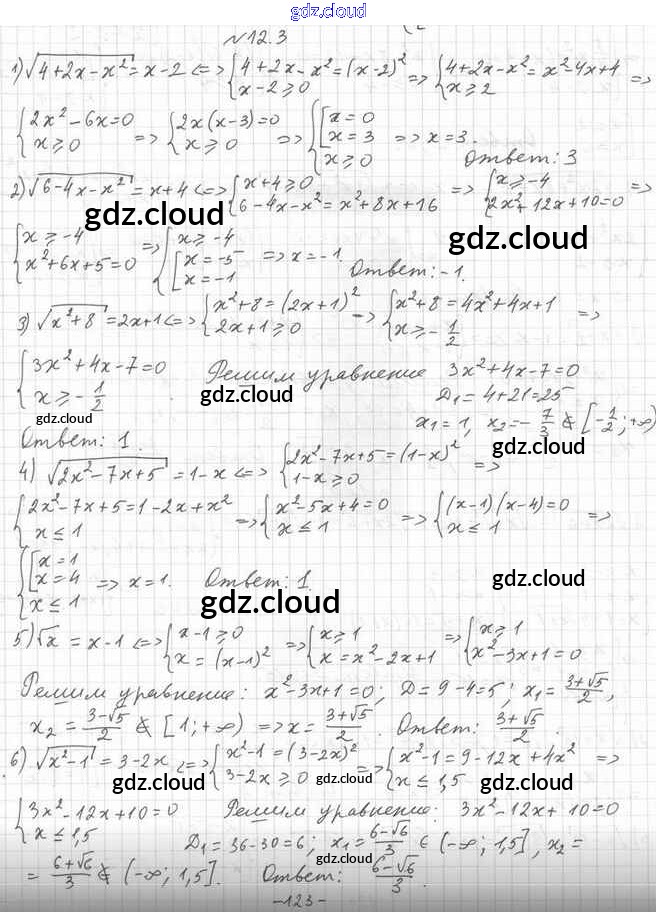 gdz.cloud
№12.3
1) √(4+2x-x²) = x-2 <=> {4+2x-x² = (x-2)²; x-2≥0 => {4+2x-x² = x²-4x+4; x≥2 =>
{2x²-6x=0; x≥0 => {2x(x-3)=0; x≥0 => {[x=0; x=3; x≥0 => x=3.
Ответ: 3
2) √(6-4x-x²) = x+4 <=> {x+4≥0; 6-4x-x² = x²+8x+16 => {x≥-4; 2x²+12x+10=0 =>
gdz.cloud
gdz.cloud
{x≥-4; x²+6x+5=0 => {x≥-4; [x=-5; x=-1 => x=-1.
Ответ: -1.
3) √(x²+8) = 2x+1 <=> {x²+8=(2x+1)²; 2x+1≥0 => {x²+8=4x²+4x+1; x≥-1/2 =>
{3x²+4x-7=0; x≥-1/2. Решим уравнение 3x²+4x-7=0
gdz.cloud
D₁=4+21=25
gdz.cloud
x₁=1, x₂=-7/3 ∉ [-1/2; +∞)
Ответ: 1.
gdz.cloud
4) √(2x²-7x+5) = 1-x <=> {2x²-7x+5=(1-x)²; 1-x≥0 =>
{2x²-7x+5=1-2x+x²; x≤1 => {x²-5x+4=0; x≤1 => {(x-1)(x-4)=0; x≤1 =>
{[x=1; x=4; x≤1 => x=1. Ответ: 1.
gdz.cloud
gdz.cloud
5) √x = x-1 <=> {x-1≥0; x=(x-1)² => {x≥1; x=x²-2x+1 => {x≥1; x²-3x+1=0
Решим уравнение: x²-3x+1=0; D=9-4=5; x₁=(3+√5)/2,
x₂=(3-√5)/2 ∉ [1;+∞) => x=(3+√5)/2. Ответ: (3+√5)/2.
gdz.cloud
6) √(x²-1) = 3-2x <=> {x²-1=(3-2x)²; 3-2x≥0 => {x²-1=9-12x+4x²; x≤1,5 =>
gdz.cloud
gdz.cloud
gdz.cloud
{3x²-12x+10=0; x≤1,5 Решим уравнение: 3x²-12x+10=0
D₁=36-30=6; x₁=(6-√6)/3 ∈ (-∞; 1,5], x₂=
gdz.cloud
= (6+√6)/3 ∉ (-∞; 1,5]. Ответ: (6-√6)/3.
gdz.cloud
-123-